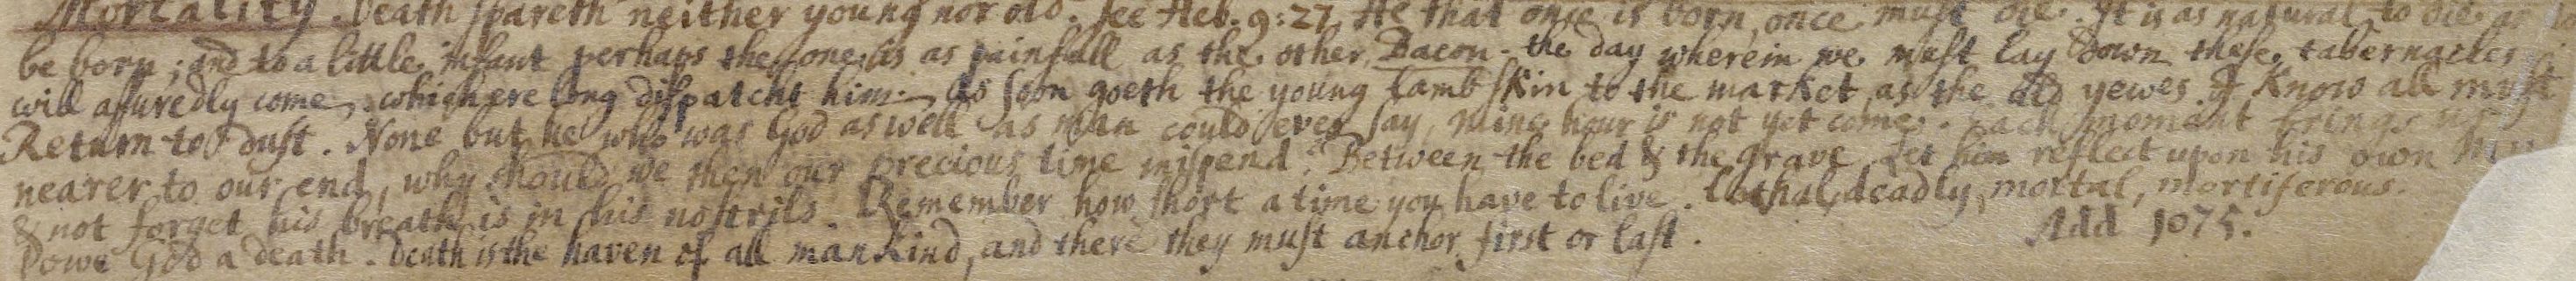 Mortality. Death spareth neither young nor old. see Heb. 9:27. He that once is born, once must die. It is as natural to die as
be born; and to a little infant perhaps the one is as painfull as the other. Bacon. the day wherein we must lay down these tabernacles
will assuredly come, which ere long dispatcht him. As soon goeth the young lamb skin to the market as the old yewes. I Know all must
Return to dust. None but he who was God as well as man could ever say, mine hour is not yet come. Each moment brings us
nearer to our end, why should we then our precious time mispend. Between the bed & the grave. Let him reflect upon his own
& not forget his breath is in his nostrils. Remember how short a time you have to live. lethal, deadly, mortal, mortiferous.
I owe God a death. Death is the haven of all mankind, and there they must anchor first or last. Add 1075.